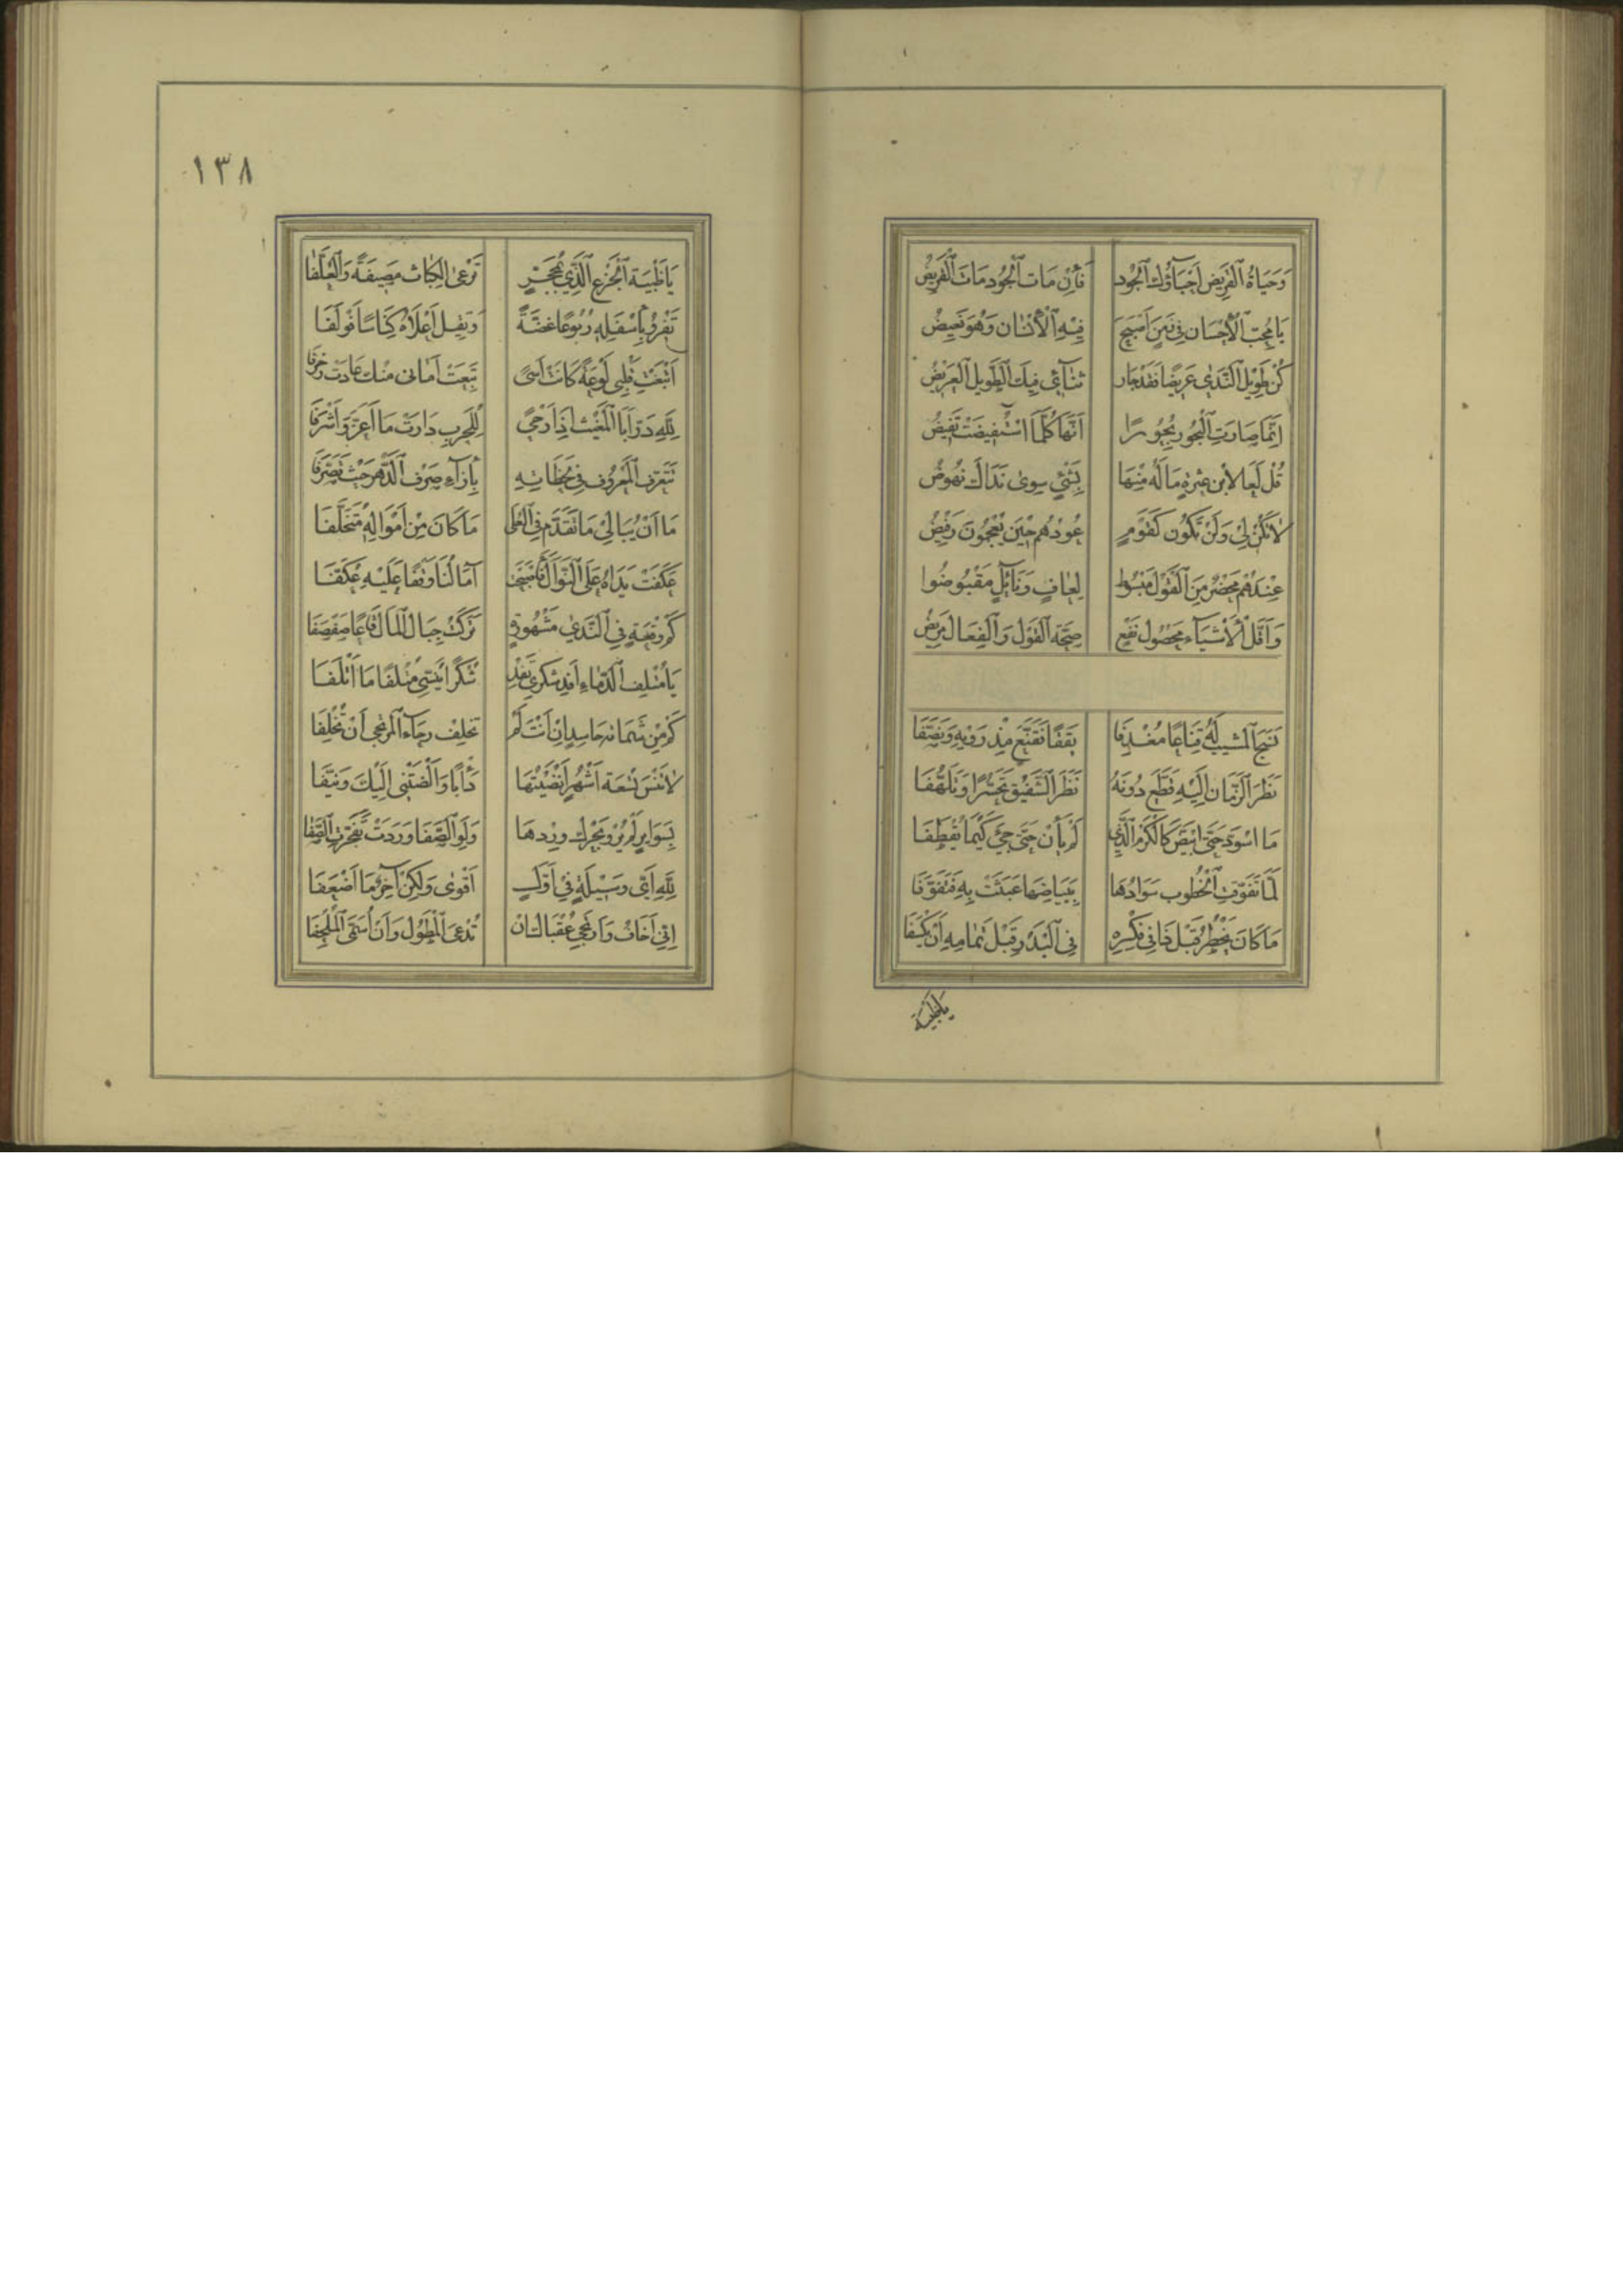 وَحَيَاةُ الْقَرِيضِ اَحْيَآؤُكَ الْجُودَ فَأِنْ مَاتَ الْجُودُ مَاتَ الْقَرِيضُ
يَا مُحِبَّ الْأِحْسَانِ فِي زَمَنٍ اَصْبَحَ فِيْهِ الْأِحْسَان وَهُوَ بَغِيضُ
كُنْ طَوِيْلَ النَّدٰى عَرِيضًا فَقَدْ سَار ثَنَآئِى فِيكَ الطَّوِيل الْعَرِيضُ
اِنَّمَا صَارَتِ الْبُحُورُ بُحُورًا اَنَّهَا كُلَّمَا اسْتُفِيضَتْ تَفِيضُ
قُلْ لَعًا لِأبْنِ عَثْرَةٍ مَا لَهُ مِنْهَا بِشَئٍ سِوٰى نَدَاكَ نُهُوضُ
لَاتَكُنْ لِيْ وَلَنْ تَكُونَ كَقَوْمٍ عُودُهُمْ حِيْنَ يُعْجَمُونَ رَضِيضُ
عِنْدَهُمْ مَحْضَرٌ مِنَ الْقَوْلِ مَبْسُوط لِعَافٍ وَنَآئِلٍ مَقْبُوضُوا
وَاَقَلُّ الْأَشْيَآءِ مَحْصُولَ نَفْعٍ صِحَّةُ الْقَوْلِ وَالْفِعَالُ مَرِيضُ
نَسَجَ الْمَشِيبُ لَهُ قِنَاعًا مُغْدَفَا يَقَقًا فَقَنَّعَ مِذْرَوَيْهِ وَنَصَّفَا
نَظَرَ الزَّمَانُ اِلَيْهِ قَطَّعَ دُونَهُ نَظَرَ الشَّفِيْقِ تَحَسُّرًا وَتَلَهُّفَا
مَا اسْوَدَّ حَتّٰى ابْيَضَّ كَالْكَرْمِ الَّذِي لَمْ يَأْنِ حَتّٰى جِئَ كَيْمَا يُقْطَفَا
لَمَّا تَفَوَّقَتِ الْخُطُوبُ سَوَادَهَا بِبَيَاضِهَا عَبَثَتْ بِهِ فَتَفَوَّفَا
مَا كَانَ يَخْطُرُ قَبْلَ ذَا فِي فِكْرِهِ فِي الْبَدْرِ قَبْلَ تَمَامِهِ اَنْ يُكْسَفَا
ياظبية
١٣٨
يَا ظَبْيَةَ الْجِزْعِ الَّذِي بِمُحَجَّرٍ تَرْعَى الْكِبَاثَ مَصِيفَةً وَالْعُلَّفَا
تَقْرُو بِأَسْفَلِهِ رُبُوعًا غَضَّةً وَتَقِيلُ اَعْلَاهُ كِنَاسًا فَوْلَفَا
اَتْبَعْتِ قَلْبِى لَوْعَةً كَانَتْ اَسًى تَبِعَتْ اَمَانِى مِنْكِ عَادَتْ زُخْرُفَا
لِلّٰهِ دَرُّ اَبَا الْمُغِيْثِ اِذَا رَحًى لِلْحَرْبِ دَارَتْ مَا اَعَزَّ وَاَشْرَفَا
تَتَعَرَّف الْمَعْرُوف فِى لَحَظَاتِهِ بِأِزَآءِ صَرْفِ الدَّهْرِ حَيْثُ تَصَرَّفَا
مَا اَنْ يُبَالِيْ مَا تَقَدَّمَ فِى الْعُلٰى مَا كَانَ مِنْ اَمْوَالِهِ مُتَخَلِّفَا
عَكَفَتْ يَدَاهُ عَلَى النَّوَالِ فَاَصْبَحَتْ اٰمَالُنَا وَقْفًا عَلَيْهِ عُكَّفَا
كَمْ وَقْعَةٍ فِي النَّدٰى مَشْهُورَةٍ تَرَكَتْ جِبَالَ الْمَالِ قَاعًا صَفْصَفَا
يَا مُتْلِفَ الدَّهْمَاءِ اَفِدْ شُكْرِي تُفِدْ شُكْرًا يُنَسِّى مُتْلِفًا مَا اَتْلَفَا
كَمْ مِنْ شَمَاتَةِ حَاسِدٍ اِنْ اَنْتَ لَمْ تُخْلِفْ رَجَآءَ الْمُرْتَجِى اَنْ تُخْلِفَا
لَاتَنْسَ تِسْعَةَ اَشْهُرٍ اَنْضَيْتُهَا دَأَبًا وَاَنْضَتْنِى اِلَيْكَ وَنَيِّفَا
بِسَوَايِرٍ لَمْ يُرْوِ بَحْرُكَ وِرْدَهَا وَلَوِ الصَّفَا وَرَدَتْ تَفَجَّرَتِ الصَّفَا
لِلّٰهِ اَىُّ وَسِيْلَةٍ فِيْ اَوَّلٍ اَقْوٰى وَلٰكِنْ اٰخِرًا مَا اَضْعَفَا
اِنِّي اَخَافُ وَاَرْتَجِي عُقْبَاكَ اَنْ تُدْعَى الْمَطُولَ وَاَنْ اُسَمَّى الْمُلْحِفَا